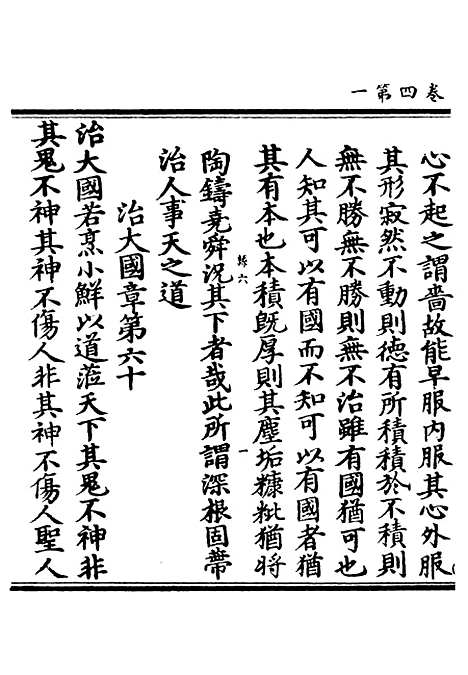 卷四第一
心不起之謂嗇故能早服內服其心外服
其形寂然不動則德有所積積於不積則
無不勝無不勝則無不治雖有國猶可也
人知其可以有國而不知可以有國者猶
其有本也本積既厚則其塵垢糠粃猶將
緜六
一
陶鑄堯舜況其下者哉此所謂深根固蔕
治人事天之道
治大國章第六十
治大國若烹小鮮以道蒞天下其鬼不神非
其鬼不神其神不傷人非其神不傷人聖人